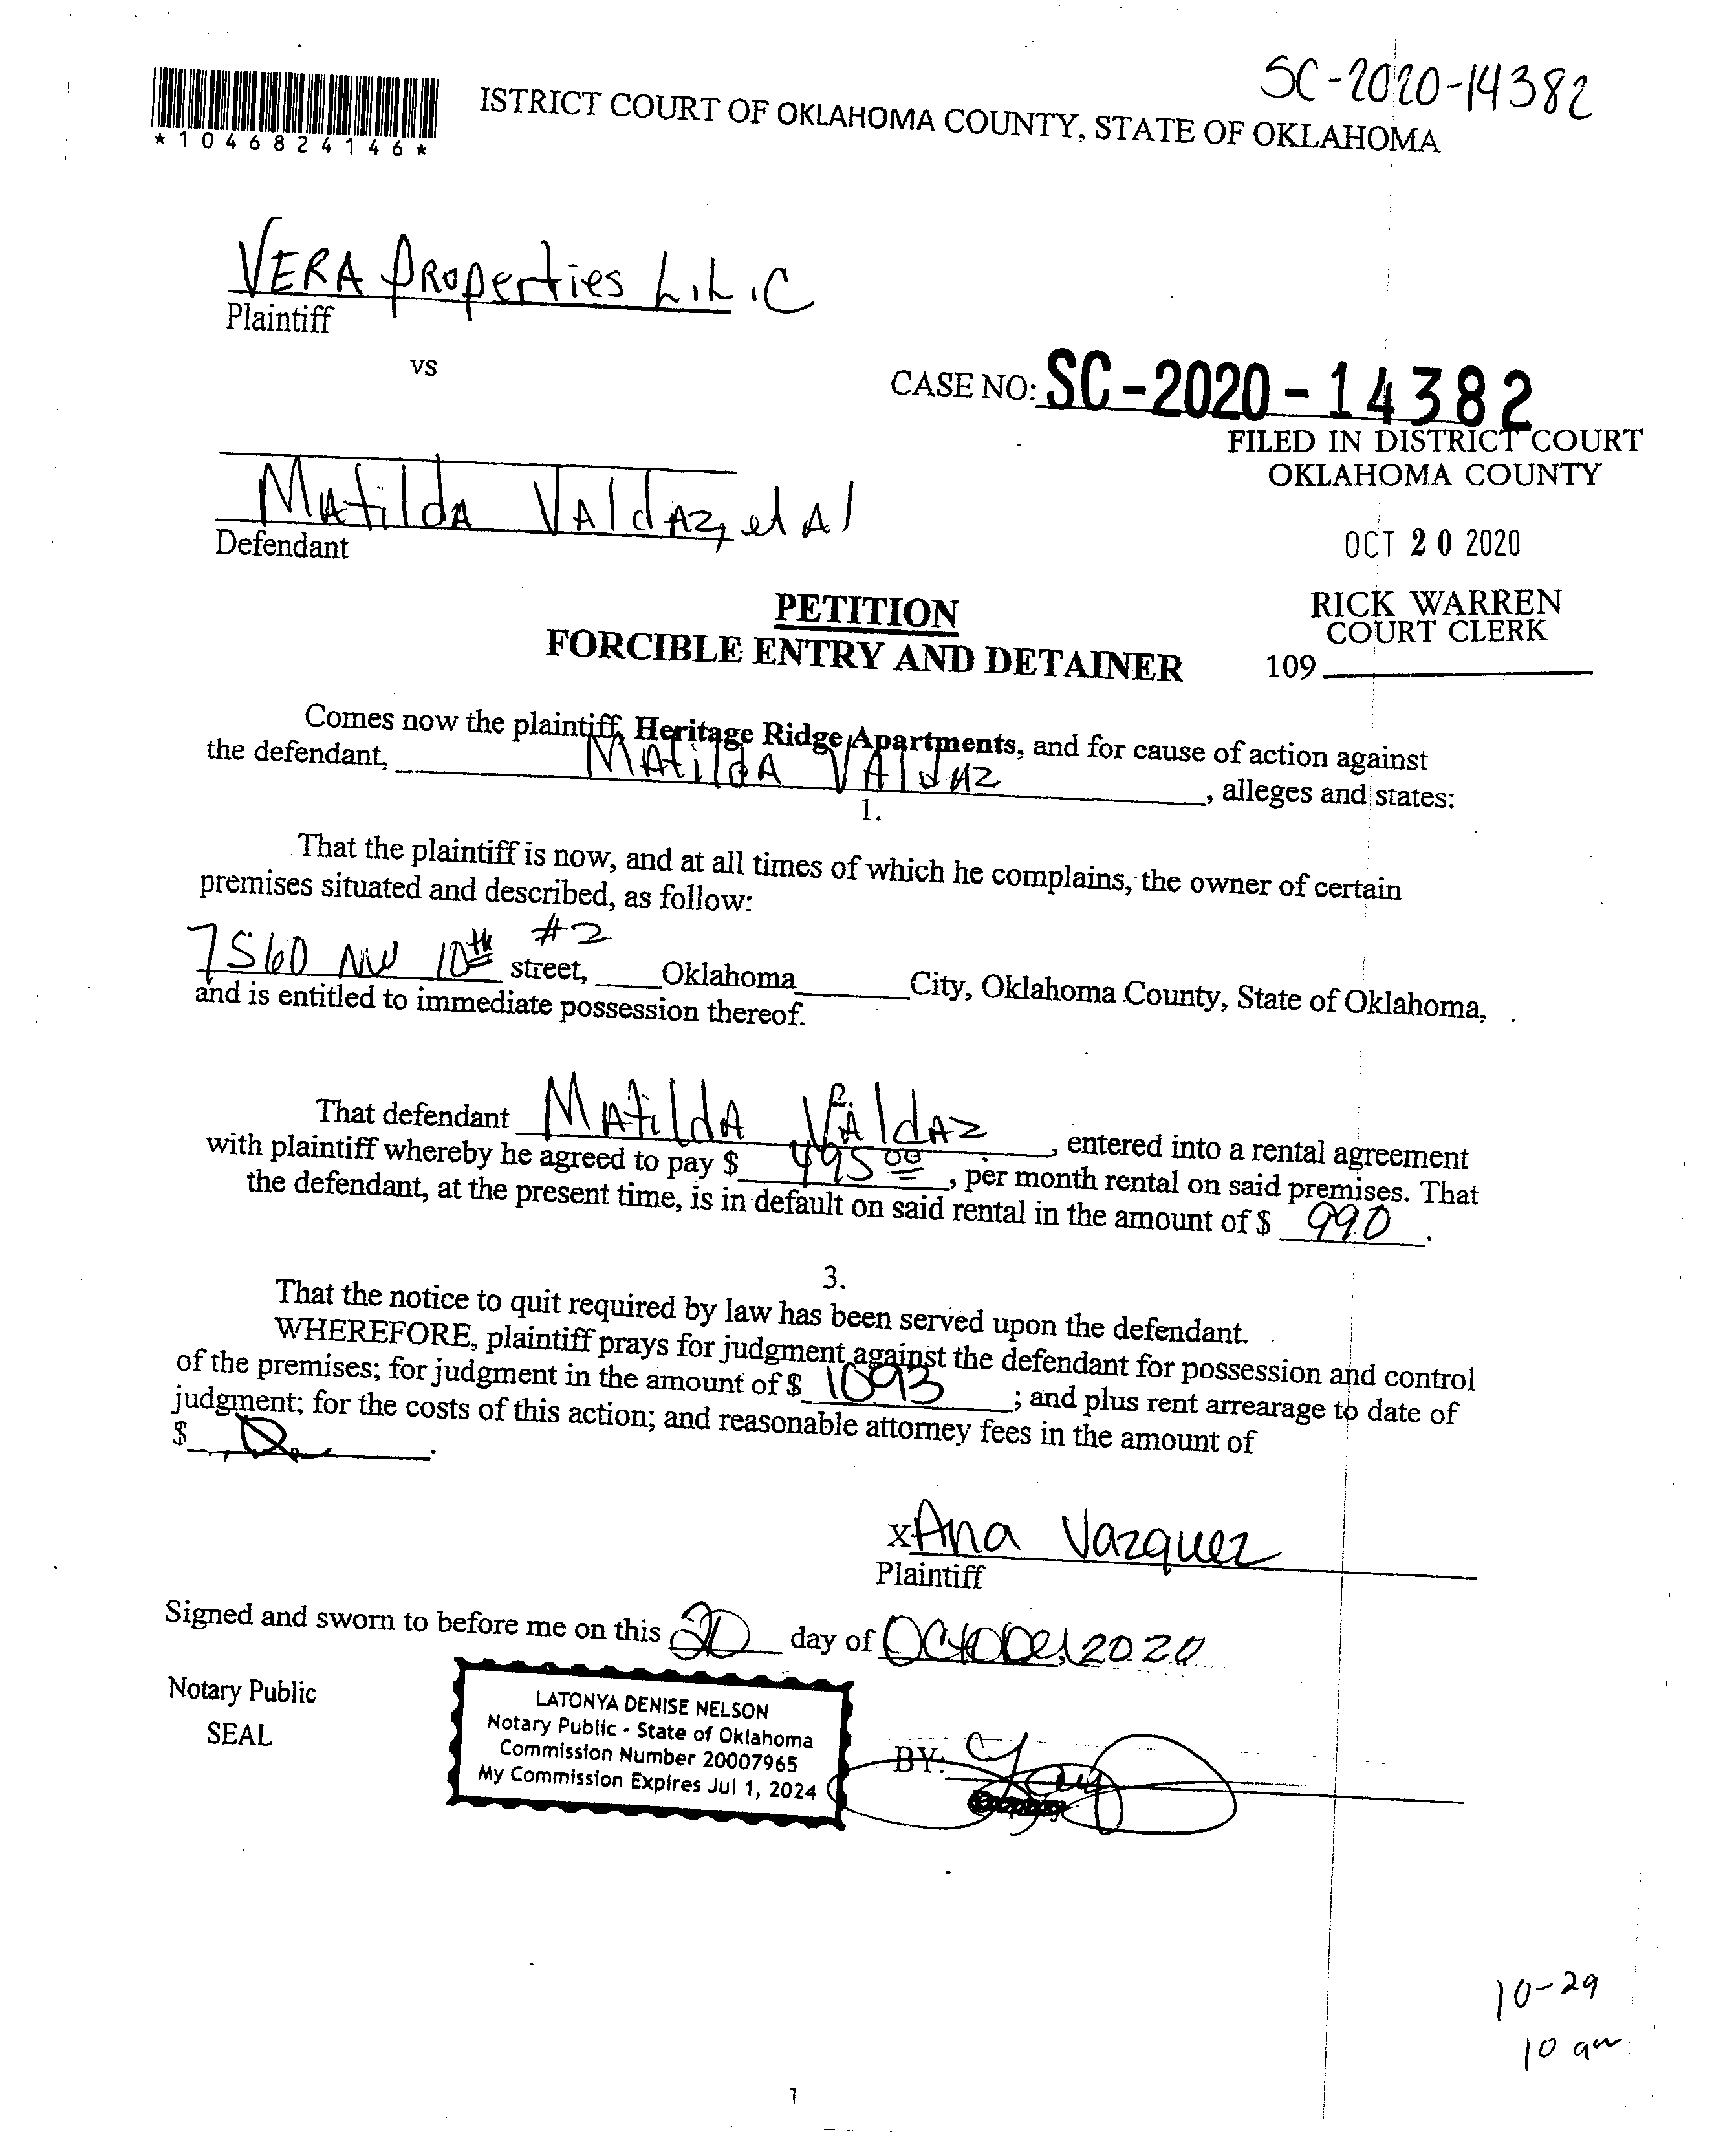 SC-2020-14382
*1046824146*
ISTRICT COURT OF OKLAHOMA COUNTY, STATE OF OKLAHOMA
VERA Properties L.L.C
Plaintiff
vs
CASE NO: SC-2020-14382
FILED IN DISTRICT COURT
OKLAHOMA COUNTY
Matilda Valdaz, et Al
Defendant
OCT 20 2020
PETITION
FORCIBLE ENTRY AND DETAINER
RICK WARREN
COURT CLERK
109
Comes now the plaintiff, Heritage Ridge Apartments, and for cause of action against
the defendant, Matilda Valdaz, alleges and states:
1.
That the plaintiff is now, and at all times of which he complains, the owner of certain
premises situated and described, as follow:
#2
7560 NW 10th street, Oklahoma City, Oklahoma County, State of Oklahoma,
and is entitled to immediate possession thereof.
2.
That defendant Matilda Valdaz, entered into a rental agreement
with plaintiff whereby he agreed to pay $ 495 00, per month rental on said premises. That
the defendant, at the present time, is in default on said rental in the amount of $ 990.
3.
That the notice to quit required by law has been served upon the defendant.
WHEREFORE, plaintiff prays for judgment against the defendant for possession and control
of the premises; for judgment in the amount of $ 1093; and plus rent arrearage to date of
judgment; for the costs of this action; and reasonable attorney fees in the amount of
$ 0.
x Ana Vazquez
Plaintiff
Signed and sworn to before me on this 20 day of October, 2020
Notary Public
SEAL
LATONYA DENISE NELSON
Notary Public - State of Oklahoma
Commission Number 20007965
My Commission Expires Jul 1, 2024
BY:
10-29
10 am
1